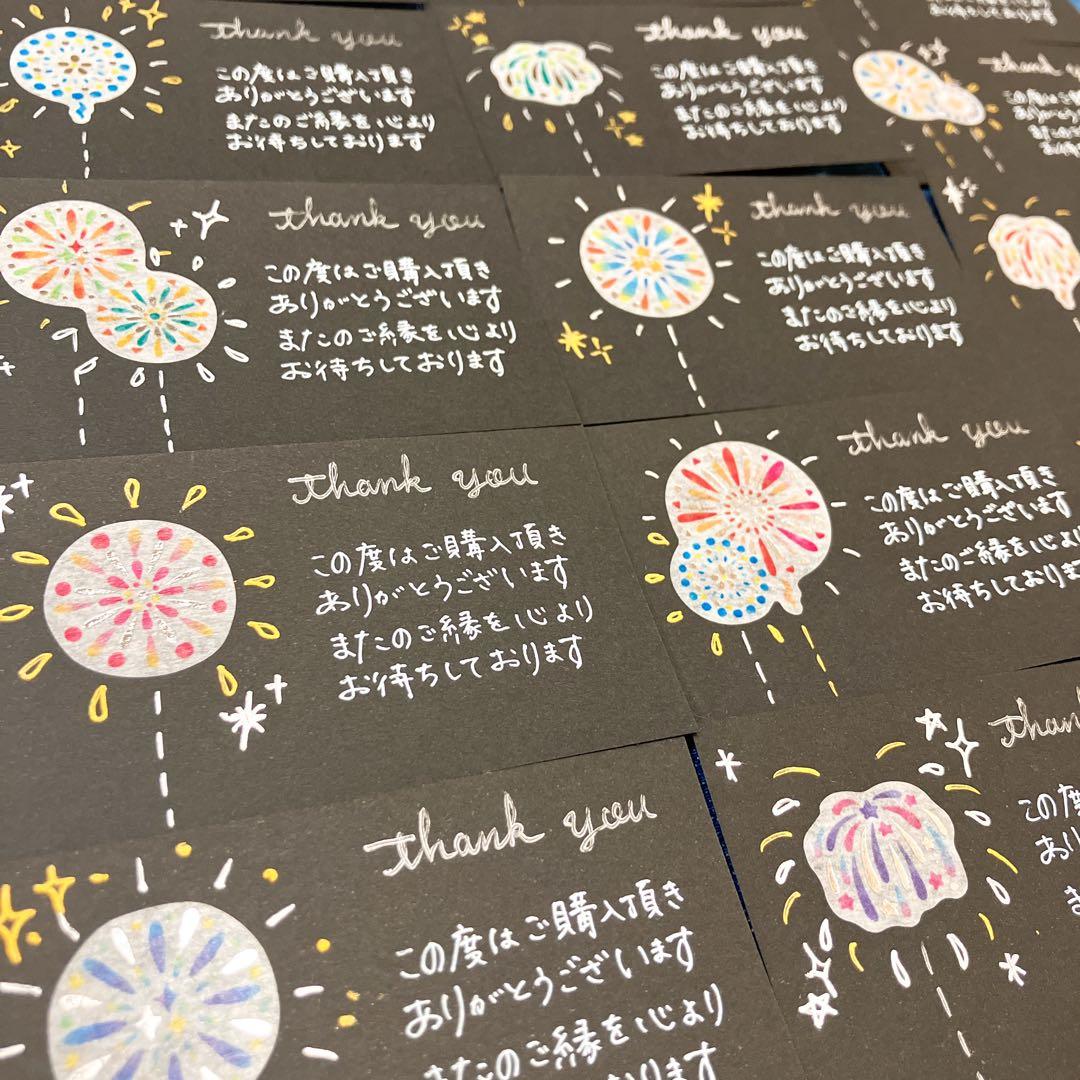 thank you
この度はご購入頂き
ありがとうございます
またのご縁を心より
お待ちしております
thank you
この度はご購入頂き
ありがとうございます
またのご縁を心より
お待ちしております
お待ちしております
thank you
この度はご購入頂き
ありがとうございます
またのご縁を心より
お待ちしております
thank you
この度はご購入頂き
ありがとうございます
またのご縁を心より
お待ちしております
thank
この度はご購入
ありがとうござ
またのご縁を
お待ちして
thank you
この度はご購入頂き
ありがとうございます
またのご縁を心より
お待ちしております
thank you
この度はご購入頂き
ありがとうございます
またのご縁を心より
お待ちしております
thank you
この度はご購入頂き
ありがとうございます
またのご縁を心より
おります
than
この度
あり
ま